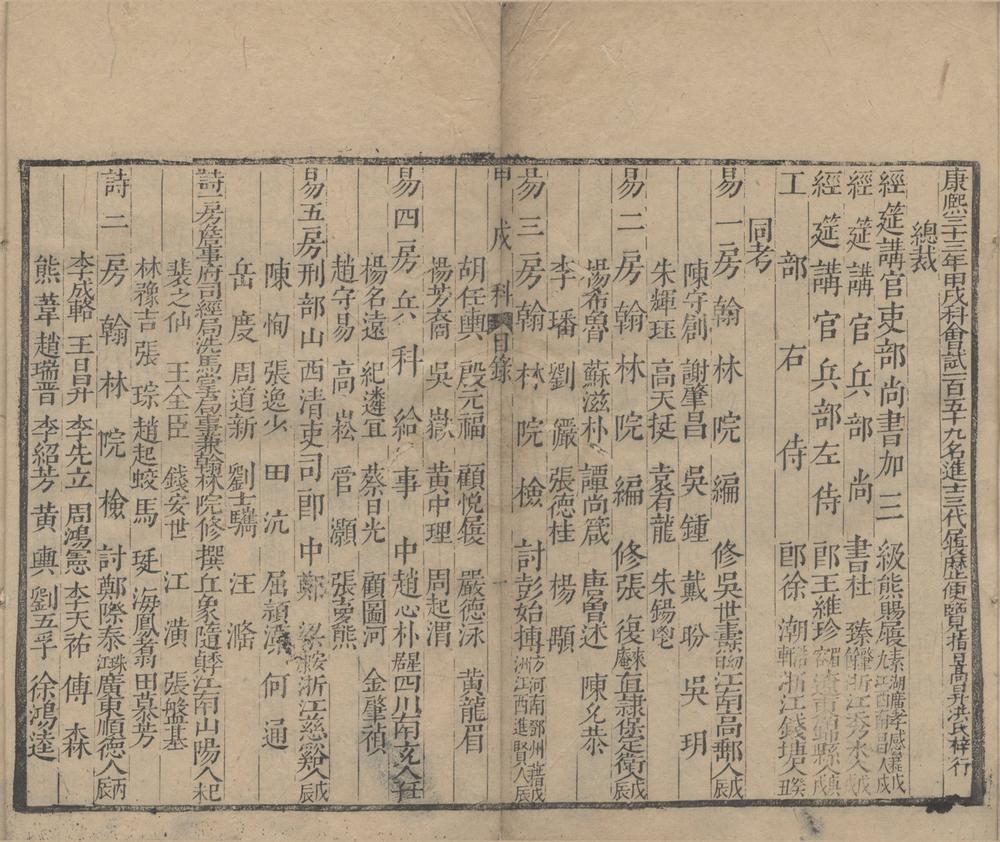 康熙三十三年甲戌科會試一百五十九名進士三代履歷便覽指日高昇洪氏梓行
總裁
經筵講官吏部尚書加三級熊賜履素九湖廣孝感籍江西南昌人戊戌
經筵講官兵部尚書杜臻浙江秀水人戊戌
經筵講官兵部左侍郎王維珍鑲黃旗遼東錦縣人戊戌
工部右侍郎徐潮浙江錢塘人癸丑
同考
易一房翰林院編修吳世燾江南高郵人戊辰
陳守創 謝肇昌 吳鍾 戴昐 吳玥
朱輝珏 高天挺 袁有龍 朱錫鬯
易二房翰林院編修張復直隸堡定衛人戊辰
楊希魯 蘇滋朴 譚尚箴 唐曾述 陳允恭
李璠 劉儼 張德桂 楊顒
易三房翰林院檢討彭始摶方洲河南鄧州籍江西進賢人戊辰
甲戌科 目錄 一
胡任輿 殷元福 顧悅履 嚴德泳 黃龍眉
楊芳裔 吳嶽 黃中理 周起渭
易四房兵科給事中趙心朴四川南充人壬辰
楊名遠 紀遴宜 蔡日光 顧圖河 金肇禎
趙守易 高崧 管灝 張夢熊
易五房刑部山西清吏司郎中鄭梁浙江慈谿人戊辰
陳恂 張逸少 田沆 屈穎藻 何通
岳度 周道新 劉士驥 汪漋
詩一房詹事府司經局洗馬掌局事兼翰林院修撰丘象隨江南山陽人己
裴之仙 王全臣 錢安世 江潢 張盤基
林豫吉 張琮 趙起蛟 馬珽 海鳳翥 田慕芳
詩二房翰林院檢討鄭際泰廣東順德人丙辰
李成輅 王日昇 李先立 周鴻憲 李天祐 傅森
熊葦 趙瑞晋 李紹芳 黃輿 劉五孚 徐鴻逵